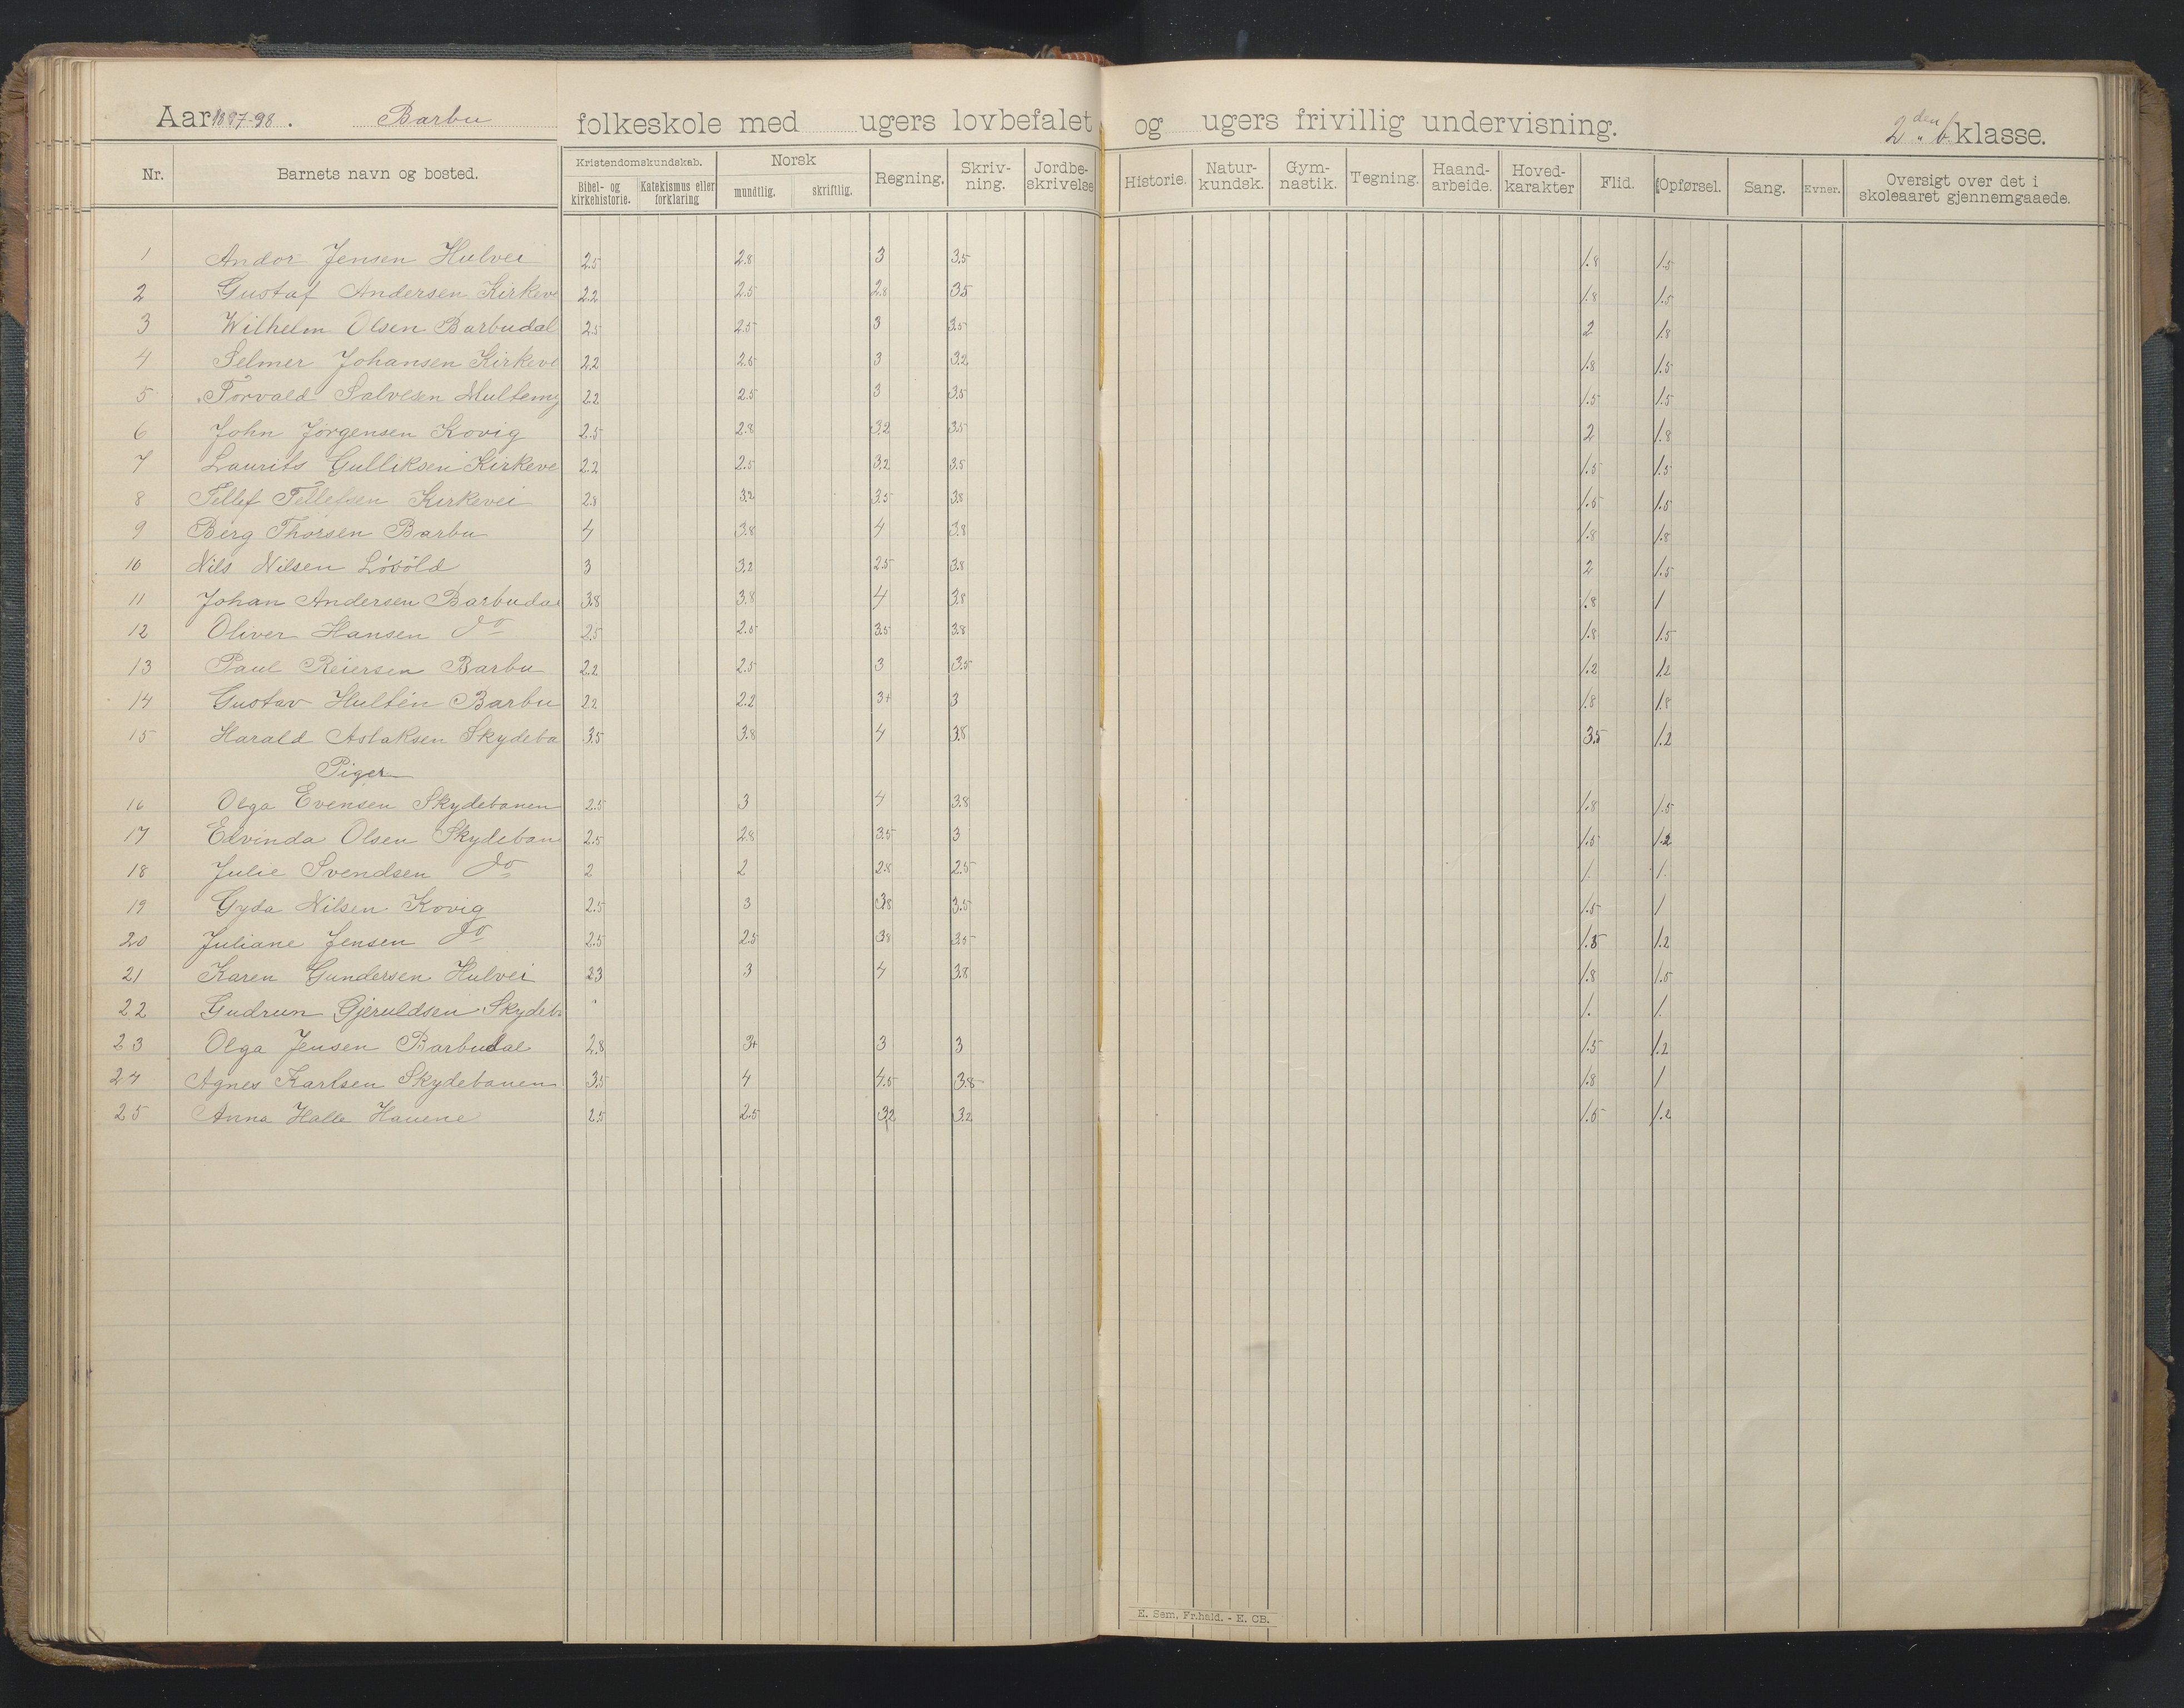 Aar 1897-98. Barbu folkeskole med ugers lovbefalet og ugers frivillig undervisning. 2den b klasse.
Nr. Barnets navn og bosted. Kristendomskundskab. Bibel- og kirkehistorie. Katekismus eller forklaring Norsk mundtlig. skriftlig. Regning. Skriv-ning. Jordbe-skrivelse Historie. Natur-kundsk. Gym-nastik. Tegning. Haand-arbeide. Hoved-karakter Flid. Opførsel. Sang. Evner. Oversigt over det i skoleaaret gjennemgaaede.
1 Andor Jensen Hulvei 2.5 2.8 3 3.5 1.8 1.5
2 Gustaf Andersen Kirkeve 2.2 2.5 2.8 3.5 1.8 1.5
3 Wilhelm Olsen Barbudal 2.5 2.5 3 3.5 2 1.8
4 Selmer Johansen Kirkeve 2.2 2.5 3 3.2 1.8 1.5
5 Torvald Salvesen Multemy 2.2 2.5 3 3.5 1.5 1.5
6 John Jörgensen Kovig 2.5 2.8 3.2 3.5 2 1.8
7 Laurits Gulliksen Kirkeve 2.2 2.5 3.2 3.5 1.5 1.5
8 Tellef Tellefsen Kirkevei 2.8 3.2 3.5 3.8 1.5 1.5
9 Berg Thorsen Barbu 4 3.8 4 3.8 1.8 1.8
10 Nils Nilsen Lövöld 3 3.2 2.5 3.8 2 1.5
11 Johan Andersen Barbudal 3.8 3.8 4 3.8 1.8 1
12 Oliver Hansen do 2.5 2.5 3.5 3.8 1.8 1.5
13 Paul Reiersen Barbu 2.2 2.5 3 3.5 1.2 1.2
14 Gustav Hultén Barbu 2.2 2.2 3+ 3 1.8 1.8
15 Harald Aslaksen Skydeba 3.5 3.8 4 3.8 3.5 1.2
Piger
16 Olga Evensen Skydebanen 2.5 3 4 3.8 1.8 1.5
17 Edvinda Olsen Skydeban 2.5 2.8 3.5 3 1.5 1.2
18 Julie Svendsen do 2 2 2.8 2.5 1. 1.
19 Gyda Nilsen Kovig 2.5 3 3.8 3.5 1.5 1
20 Juliane Jensen do 2.5 2.5 3.8 3.5 1.5 1.2
21 Karen Gundersen Hulvei 2.3 3 4 3.8 1.8 1.5
22 Gudrun Gjeruldsen Skydeb 1. 1.
23 Olga Jensen Barbudal 2.8 3+ 3 3 1.5 1.2
24 Agnes Karlsen Skydebanen 3.5 4 4.5 3.8 1.8 1
25 Anna Halle Havene 2.5 2.5 3.2 3.2 1.5 1.2
E. Sem, Fr.hald. - E. CB.